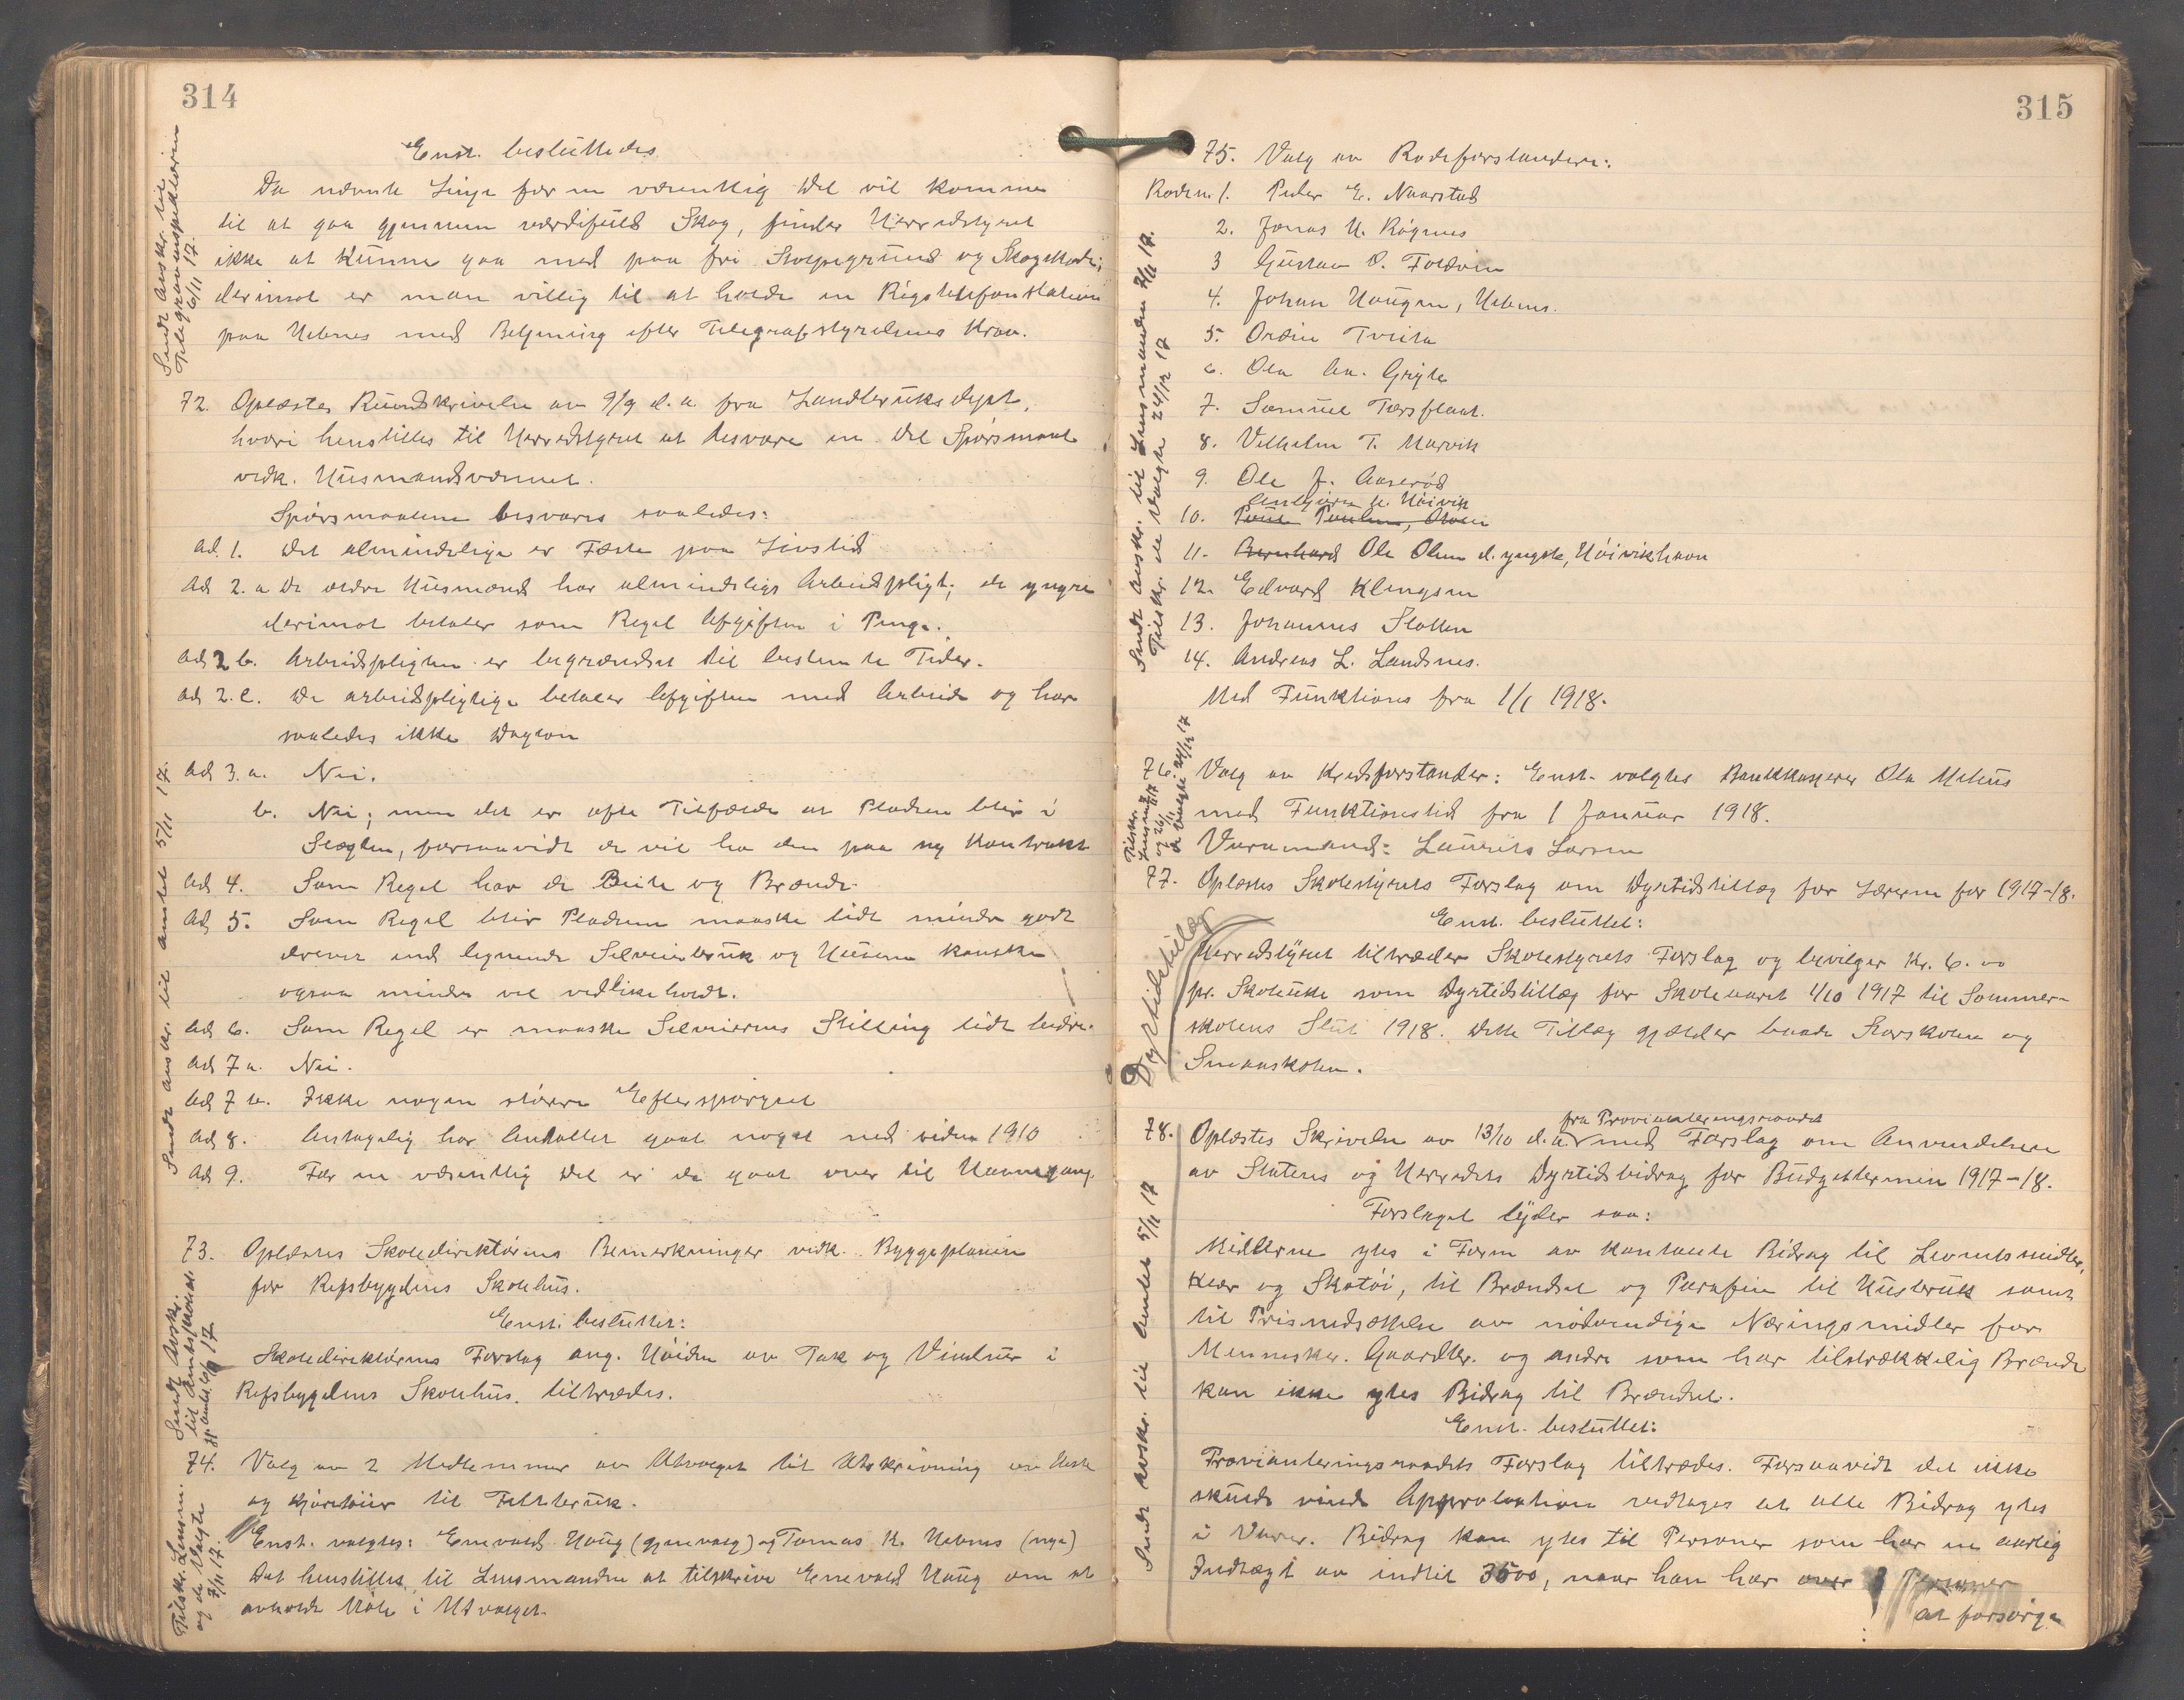 314
Enst. besluttedes
Da nævnte Linje for en væsentlig Del vil komme
til at gaa gjennem værdifuld Skog, finder Herredstyret
ikke at kunne gaa med paa fri Stolpegrund og Skogskade;
derimot er man villig til at holde en Rigstelefonstation
paa Nebnes med Betjening efter Telegrafstyrelsens Krav.
Sendt Avskr. til
Telegrafinspektøren
6/11 17.
72. Oplæstes Rundskrivelse av 9/9 d.a. fra Landbruksdept.
hvori henstilles til Herredstyret at besvare en Del Spørsmaal
vedk. Husmandsvæsenet.
Spørsmaalene besvares saaledes:
Ad. 1. Det almindelige er Fæste paa Livstid
Ad 2. a De ældre Husmænd har almindelig Arbeidspligt; de yngre
derimot betaler som Regel Afgiften i Penge.
Ad 2 b. Arbeidspligten er begrændset til bestemte Tider.
Ad 2. c. De arbeidspligtige betaler Afgiften med Arbeide og har
saaledes ikke Dagløn
Ad 3. a. Nei.
b. Nei; men det er ofte Tilfælde at Pladsen blir i
Slægten, forsaavidt de vil ha den paa ny Kontrakt
Ad 4. Som Regel har de Beite og Brænde
Ad 5. Som Regel blir Pladsene maaske lidt mindre godt
drevet end lignende Selveierbruk og Husene kanske
ogsaa mindre vel vedlikeholdt.
Ad 6. Som Regel er maaske Selveiernes Stilling lidt bedre.
Ad 7 a. Nei.
Ad 7 b. Ikke nogen større Efterspørgsel
Ad 8. Antagelig har Antallet gaat noget ned siden 1910
Ad 9. For en væsentlig Del er de gaat over til
Sendt Avskr. til Amtet 5/11 17.
73. Oplæstes Skoledirektørens Bemerkninger vedk. Byggeplanen
for Refsbygdens Skolehus.
Enst. besluttet:
Skoledirektørens Forslag ang. Høiden av Tak og Vinduer i
Refsbygdens Skolehus tiltrædes.
Sendt Avskr.
til Amtsskole
74. Valg av 2 Medlemmer av Utvalget til Utskrivning av Heste
og Kjøretøier til Feltbruk.
Enst. valgtes: Enevald Haug (gjenvalg) og Tomas K. Nebnes (nye)
Det henstilles til Lensmanden at tilskrive Enevald Haug om at
avholde Møte i Utvalget.
Tilskr. Lensm.
og de Valgte
7/11 17.
315
75. Valg av Rodeforstandere:
Roden 1. Peder E. Naarstad
2. Jonas N. Røgnes
3 Gustav O. Foldøen
4. Johan Haugen, Nebnes.
5. Ordin Tveita
6. Ola An. Gryte
7. Samuel Torsflaat.
8. Vilhelm T. Marvik
9. Ole J. Aaserød
10. Høivik
11. Bernhard Ole Olsen d. yngste, Høivikhavn
12. Edvard Klungsen
13. Johannes Slatten
14. Andreas L. Landsnes.
Med Funktions fra 1/1 1918.
Sendt Avskr. til Lensmanden 7/11 17.
Tilskr. de Valgte 24/12 17
76. Valg av Kredsforstander: Enst. valgtes Bankkasserer Ola Mehus
med Funktionstid fra 1 Januar 1918.
Varamand: Laurits Larsen
Tilskr.
Lensmd. 7/11 17
de Valgte 24/12 17
77. Oplæstes Skolestyrets Forslag om Dyrtidstillæg for Lærerne for 1917-18.
Enst. besluttet:
Herredstyret tiltræder Skolestyrets Forslag og bevilger Kr. 6.00
pr. Skoleuke som Dyrtidstillæg for Skoleaaret 1/10 1917 til Sommer-
skolens Slut 1918. Dette Tillæg gjælder baade Storskolen og
Smaaskolen.
Dyrtidstillæg
78. Oplæstes Skrivelse av 13/10 d.a. fra Provianteringsraadet med Forslag om Anvendelsen
av Statens og Herredets Dyrtidsbidrag for Budgetterminen 1917-18.
Forslaget lyder saa:
Midlerne ytes i Form av kontante Bidrag til Levnetsmidler,
Klær og Skotøi, til Brændsel og Parafin til Husbruk samt
til Prisnedsættelse av nødvendige Næringsmidler for
Mennesker. Gaardbr. og andre som har tilstrækkelig Brænde
kan ikke ytes Bidrag til Brændsel.
Enst. besluttet:
Provianteringsraadets Forslag tiltrædes. Forsaavidt det ikke
skulde vinde Approbation vedtages at alle Bidrag ytes
i Varer. Bidrag kan ytes til Personer som har en aarlig
Indtægt av indtil 3500, naar han har over Personer
at forsørge
Sendt Avskr. til Amtet 5/11 17